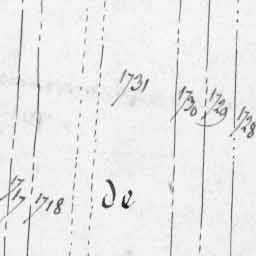 1731
1730 1729 1728
1717 1718 de